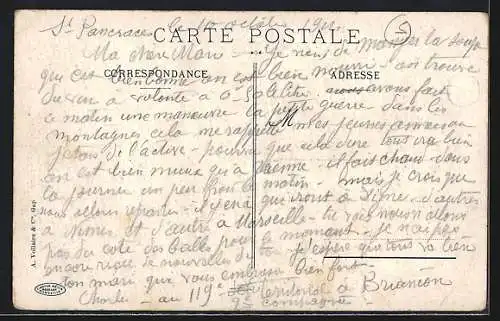 St Pancrace le 10 octobre 19
CARTE POSTALE
Ma chère Marie - Je viens de manger la soupe
CORRESPONDANCE
ADRESSE
qui est bien bonne on est bien nourri on trouve
du vin a volonté a 0f50 le litre. nous avons fait
ce matin une manoeuvre la petite guerre dans les
montagnes cela me rappelle mes jeunes années
de l'active - pourvu que cela dure tout ira bien
on est bien mieux qu'a Vienne - il fait chaud dans
la journée un peu froid le matin - mais je crois que
nous allons repartir - il y en a qui iront a Nîmes - d'autres
a Nimes et d'autre a Marseille - tu vois nous n'allons
pas du coté des balles pour le moment - je n'ai pas
encore reçu de nouvelles de toi j'espère que tout va bien
ton mari que vous embrasse bien fort
Charles - au 119e territorial à Briançon
9e compagnie
A. Vollaire & Cie, Gap